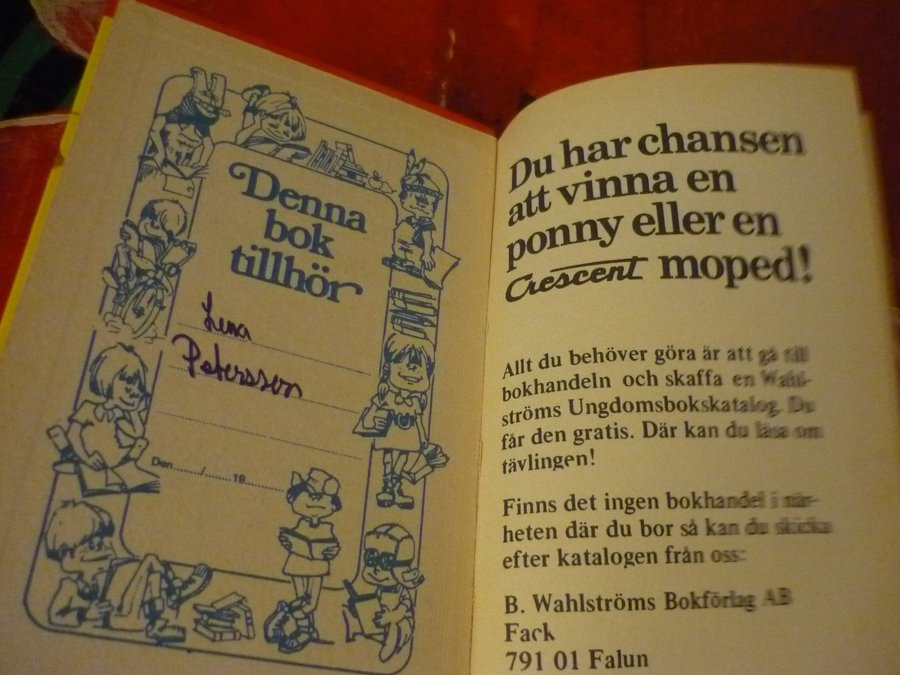 Denna
bok
tillhör
Lena
Petersson
Den......../........19............
Du har chansen
att vinna en
ponny eller en
Crescent moped!
Allt du behöver göra är att gå till
bokhandeln och skaffa en Wahl-
ströms Ungdomsbokskatalog. Du
får den gratis. Där kan du läsa om
tävlingen!
Finns det ingen bokhandel i när-
heten där du bor så kan du skicka
efter katalogen från oss:
B. Wahlströms Bokförlag AB
Fack
791 01 Falun